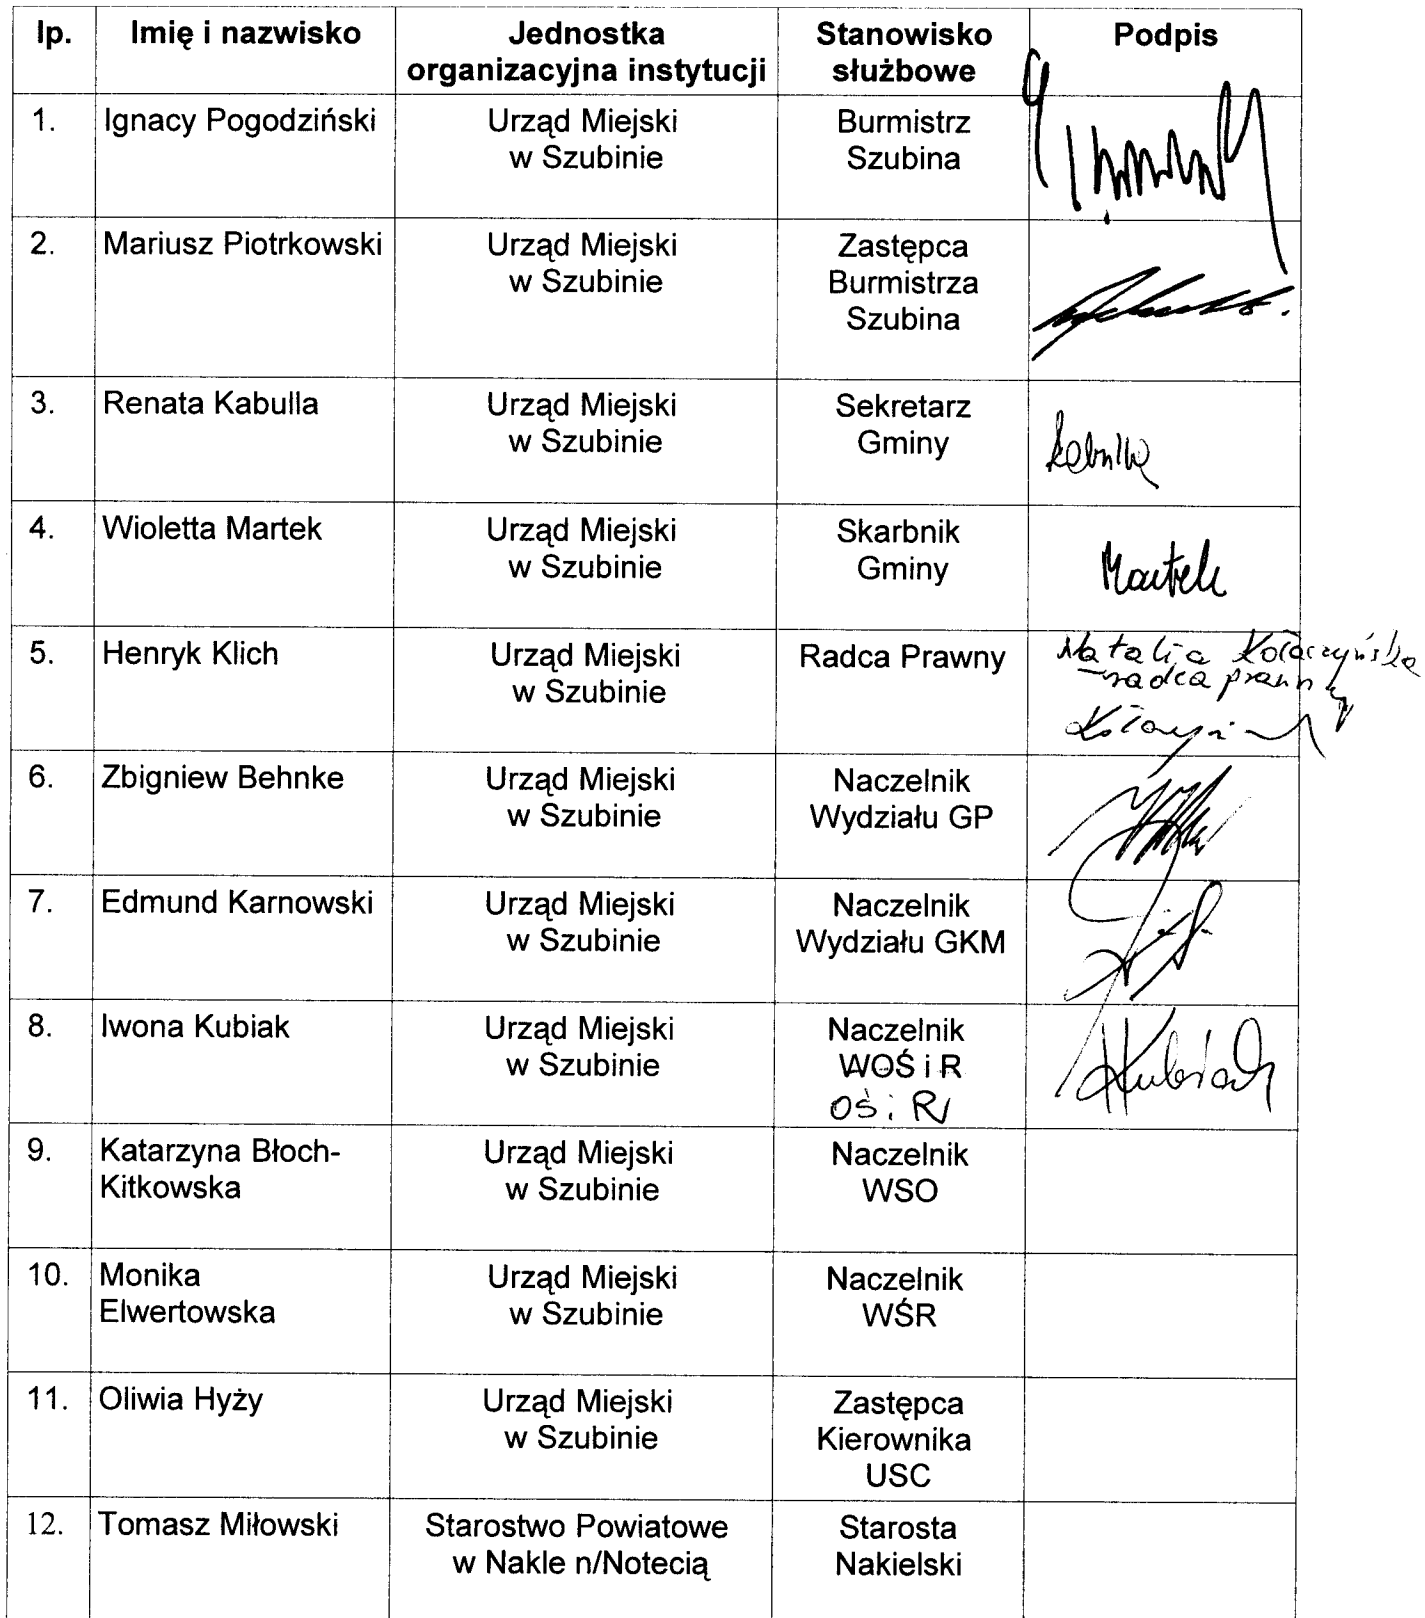 lp. Imię i nazwisko Jednostka organizacyjna instytucji Stanowisko służbowe Podpis
1. Ignacy Pogodziński Urząd Miejski w Szubinie Burmistrz Szubina
2. Mariusz Piotrkowski Urząd Miejski w Szubinie Zastępca Burmistrza Szubina
3. Renata Kabulla Urząd Miejski w Szubinie Sekretarz Gminy
4. Wioletta Martek Urząd Miejski w Szubinie Skarbnik Gminy Martek
5. Henryk Klich Urząd Miejski w Szubinie Radca Prawny Natalia Kołaczyńska
radca prawny
6. Zbigniew Behnke Urząd Miejski w Szubinie Naczelnik Wydziału GP
7. Edmund Karnowski Urząd Miejski w Szubinie Naczelnik Wydziału GKM
8. Iwona Kubiak Urząd Miejski w Szubinie Naczelnik WOŚ i R OŚ i R Kubiak
9. Katarzyna Błoch-Kitkowska Urząd Miejski w Szubinie Naczelnik WSO
10. Monika Elwertowska Urząd Miejski w Szubinie Naczelnik WŚR
11. Oliwia Hyży Urząd Miejski w Szubinie Zastępca Kierownika USC
12. Tomasz Miłowski Starostwo Powiatowe w Nakle n/Notecią Starosta Nakielski